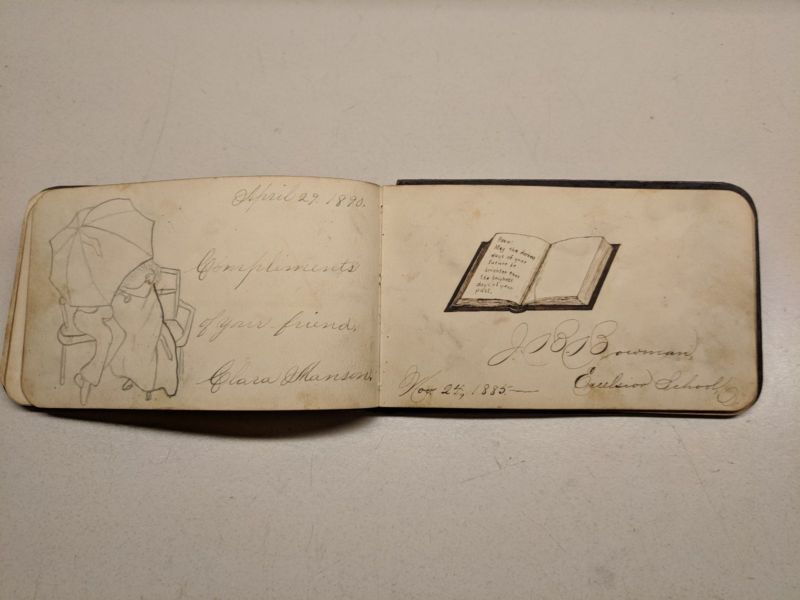 April 29. 1890.
Compliments
of your friend,
Clara Manson.
May the darkest
days of your
future be
brighter than
the brightest
days of your
past.
J. B. Bowman,
Nov. 24, 1885.
Excelsior School